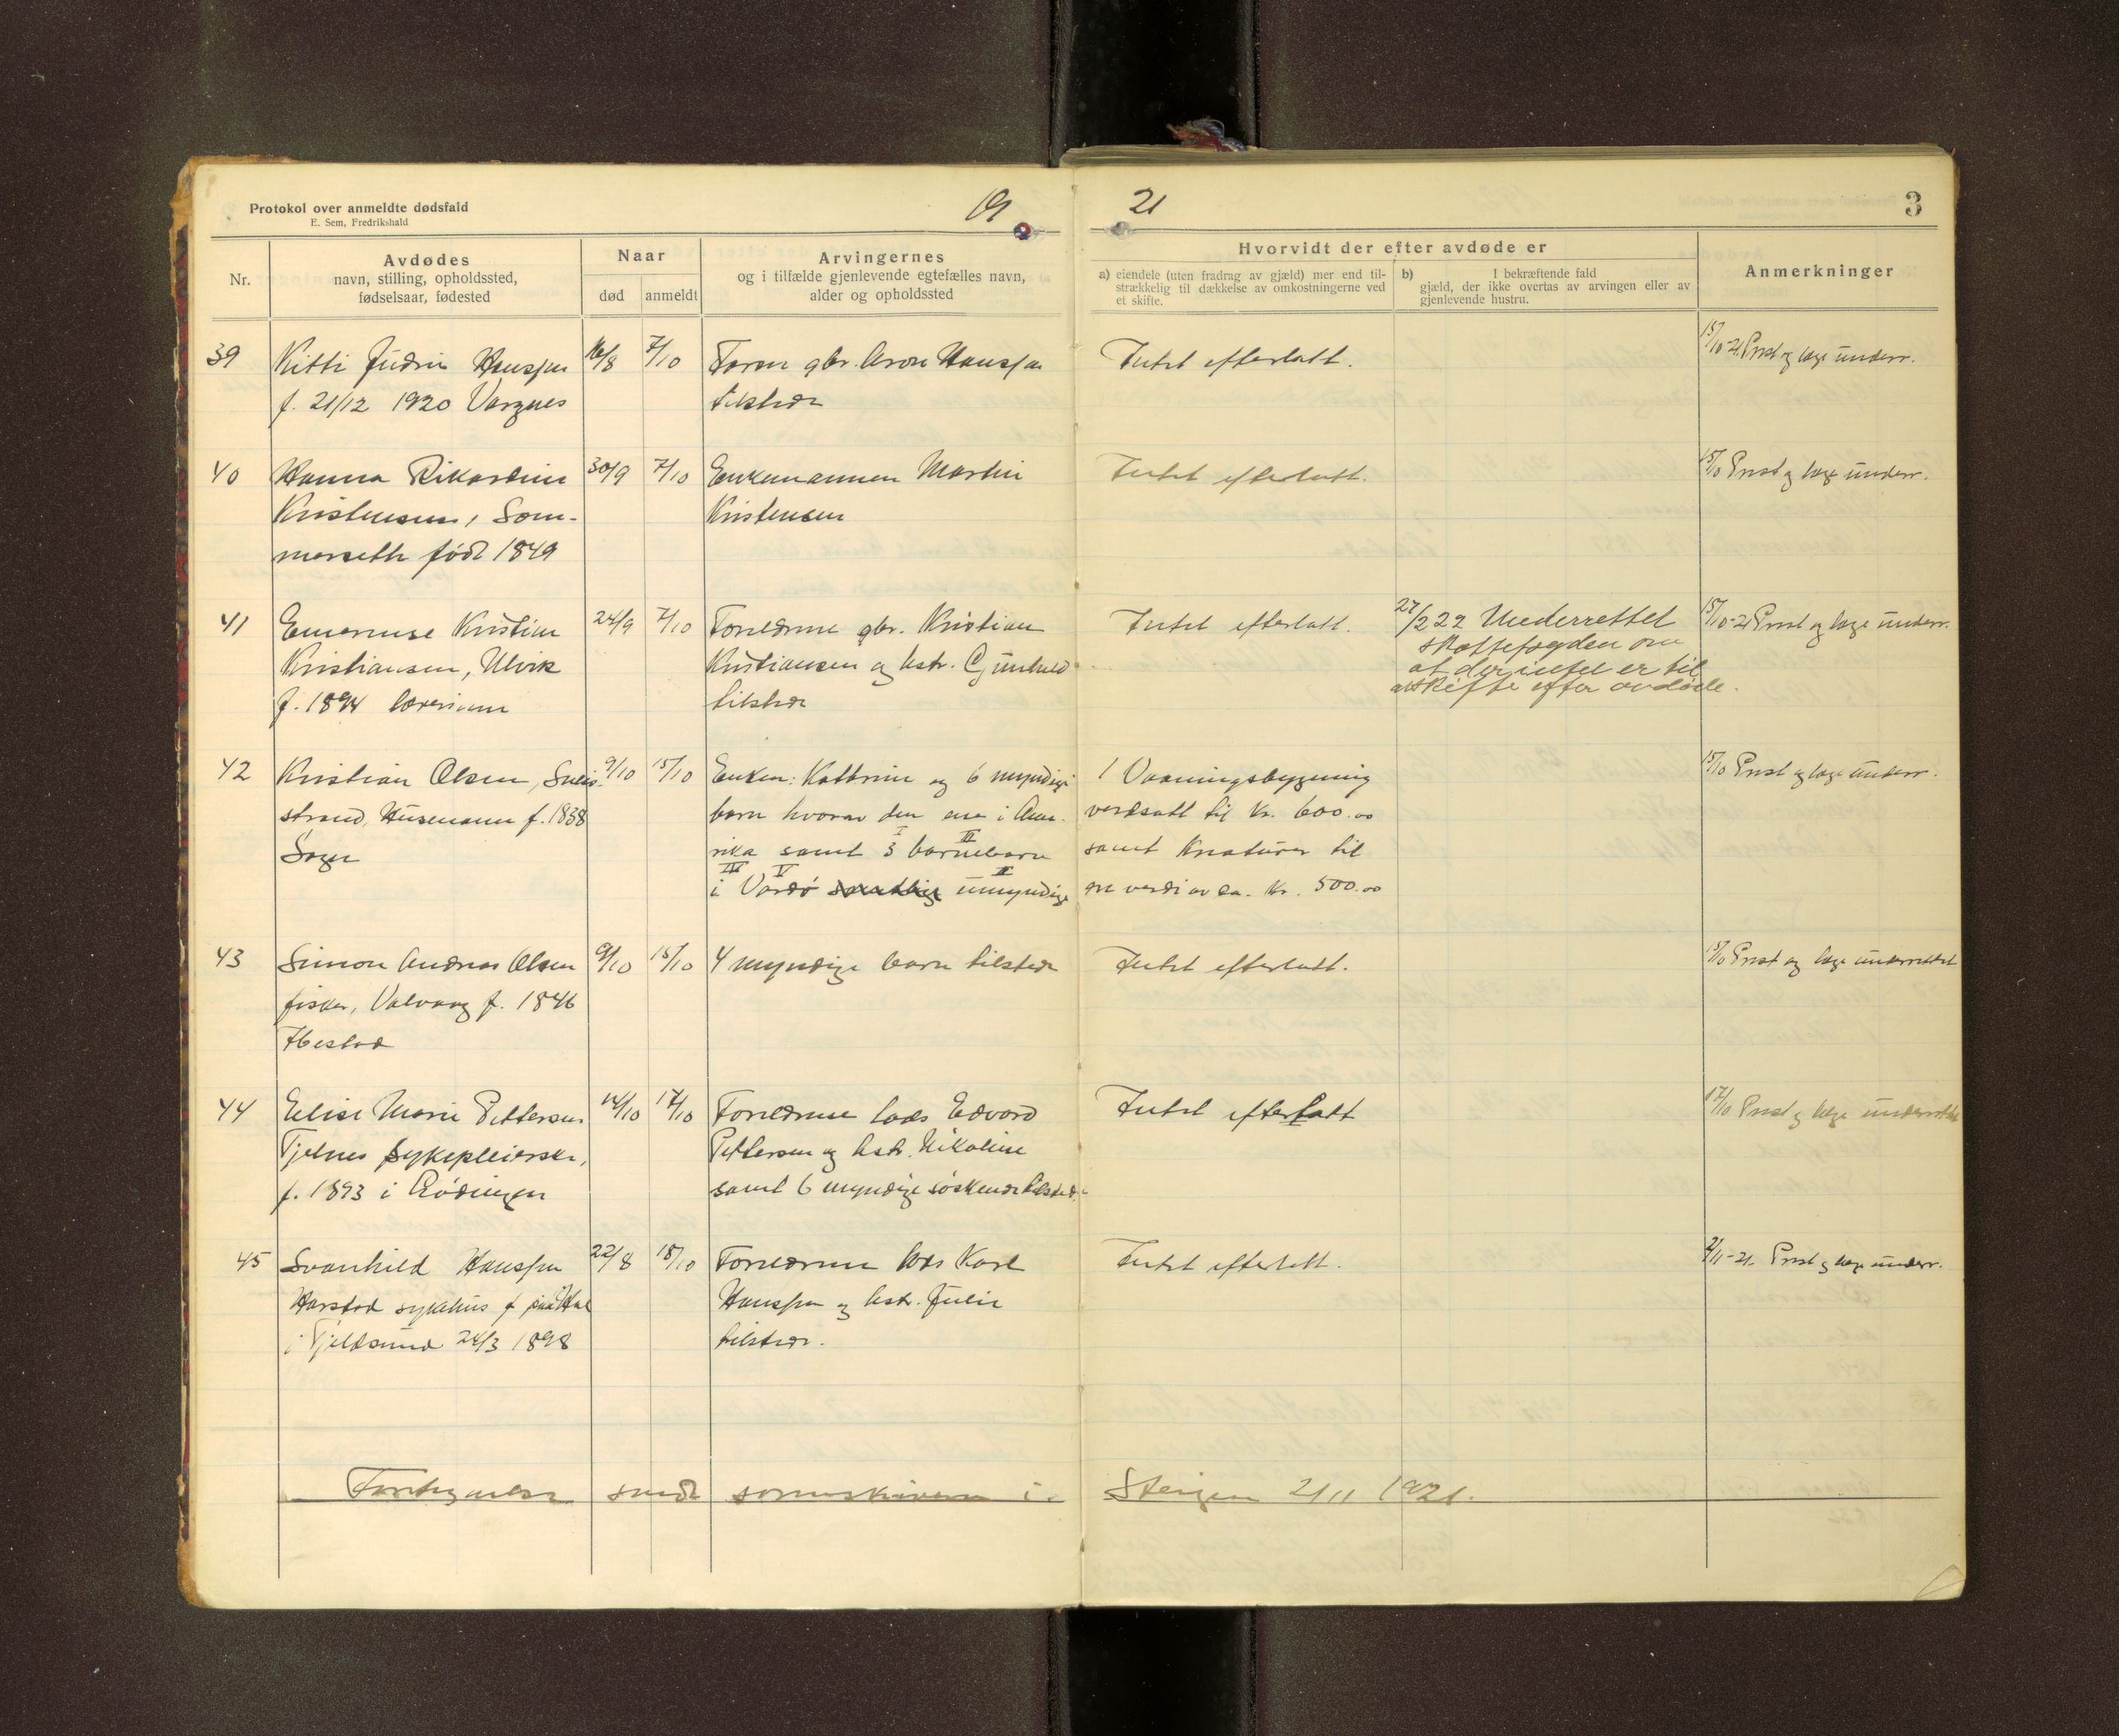 Protokol over anmeldte dødsfald
E. Sem, Fredrikshald
19
21
3
Nr.
Avdødes
navn, stilling, opholdssted,
fødselsaar, fødested
Naar
død
anmeldt
Arvingernes
og i tilfælde gjenlevende egtefælles navn,
alder og opholdssted
Hvorvidt der efter avdøde er
a) eiendele (uten fradrag av gjæld) mer end til-
strækkelig til dækkelse av omkostningerne ved
et skifte.
b) I bekræftende fald
gjæld, der ikke overtas av arvingen eller av
gjenlevende hustru.
Anmerkninger
39
Hansen
f. 21/12 1920
16/8
7/10
Faren gbr. Aron Hansen
tilstede
Intet efterlatt.
15/10-21 Prest og læge underr.
40
Hanna Rikardine
Kristensen, Som-
merseth født 1849
30/9
7/10
Enkemannen Martin
Kristensen
Intet efterlatt.
15/10 Prest og læge underr.
41
Kristian
Kristiansen, Ulvik
f. 1894
24/9
7/10
Forældrene gbr. Kristian
Kristiansen og hstr. Gunhild
tilstede
Intet efterlatt.
27/2 22 Underrettet
skattefogden om
at der intet er til
skifte efter avdøde.
15/10-21 Prest og læge underr.
42
Kristian Olsen,
strand, Husmann f. 1838
9/10
15/10
Enken: Kathrine og 6 myndige
barn hvorav den ene i Ame-
rika samt 3 barnebarn
i Vardø umyndige
1 Vaaningsbygning
verdsatt til Kr. 600.00
samt Kreaturer til
en verdi av ca. Kr. 500.00
15/10 Prest og læge underr.
43
Simon Andreas Olsen
fisker, Valvaag f. 1846
Ibestad
9/10
15/10
4 myndige barn tilstede
Intet efterlatt.
15/10 Prest og læge underrettet
44
Elise Marie Pettersen
Tjelnes sykepleierske,
f. 1893 i Lødingen
14/10
17/10
Forældrene lods Edvard
Pettersen og hstr. Nikoline
samt 6 myndige søskende tilstede
Intet efterlatt
17/10 Prest og læge underrettet
45
Svanhild Hansen
Harstad sykehus f. paa
i Fjeldsund 24/3 1898
22/8
18/10
Forældrene lods Karl
Hansen og hstr. Julie
tilstede.
Intet efterlatt.
2/11-21. Prest og læge underr.
Fortegnelse sendt sorenskriveren i Steigen 2/11 1921.